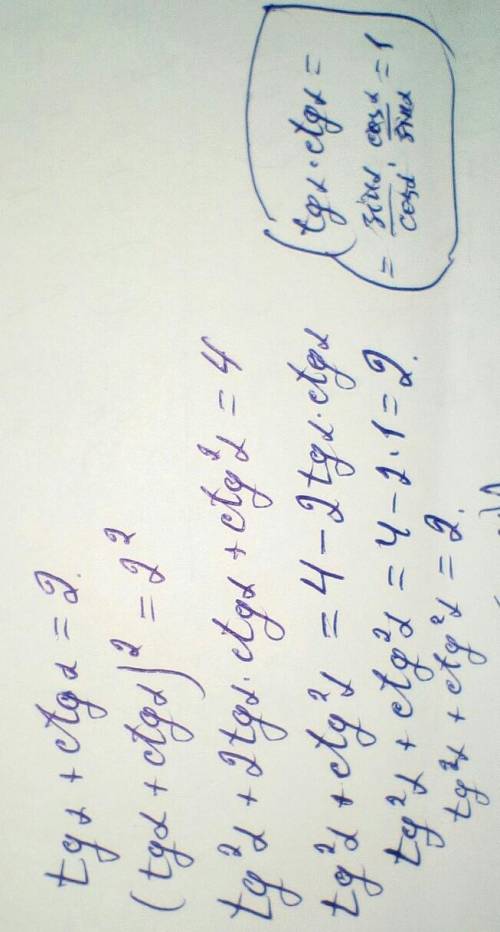 tgα + ctgα = 2.
(tgα + ctgα)² = 2²
tg²α + 2tgα·ctgα + ctg²α = 4
tg²α + ctg²α = 4 - 2tgα·ctgα
tg²α + ctg²α = 4 - 2·1 = 2.
tg²α + ctg²α = 2.
(tgα·ctgα =
= sinα/cosα · cosα/sinα = 1